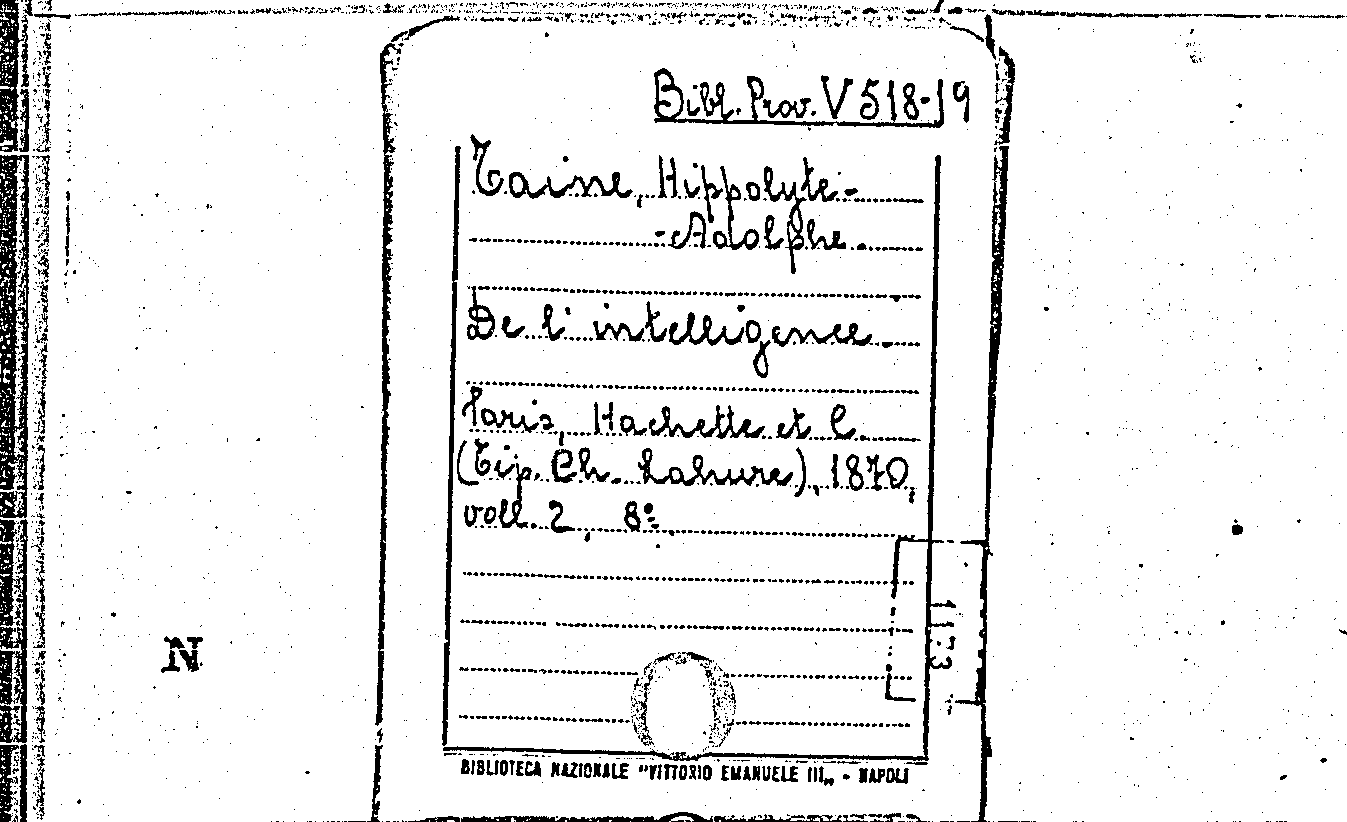 Bibl. Prov. V 518-19
Taine, Hippolyte-
-Adolphe.
De l'intelligence.
Paris, Hachette et C.
(Tip. Ch. Lahure), 1870,
voll. 2, 8º.
1173
N
BIBLIOTECA NAZIONALE "VITTORIO EMANUELE III„ - NAPOLI